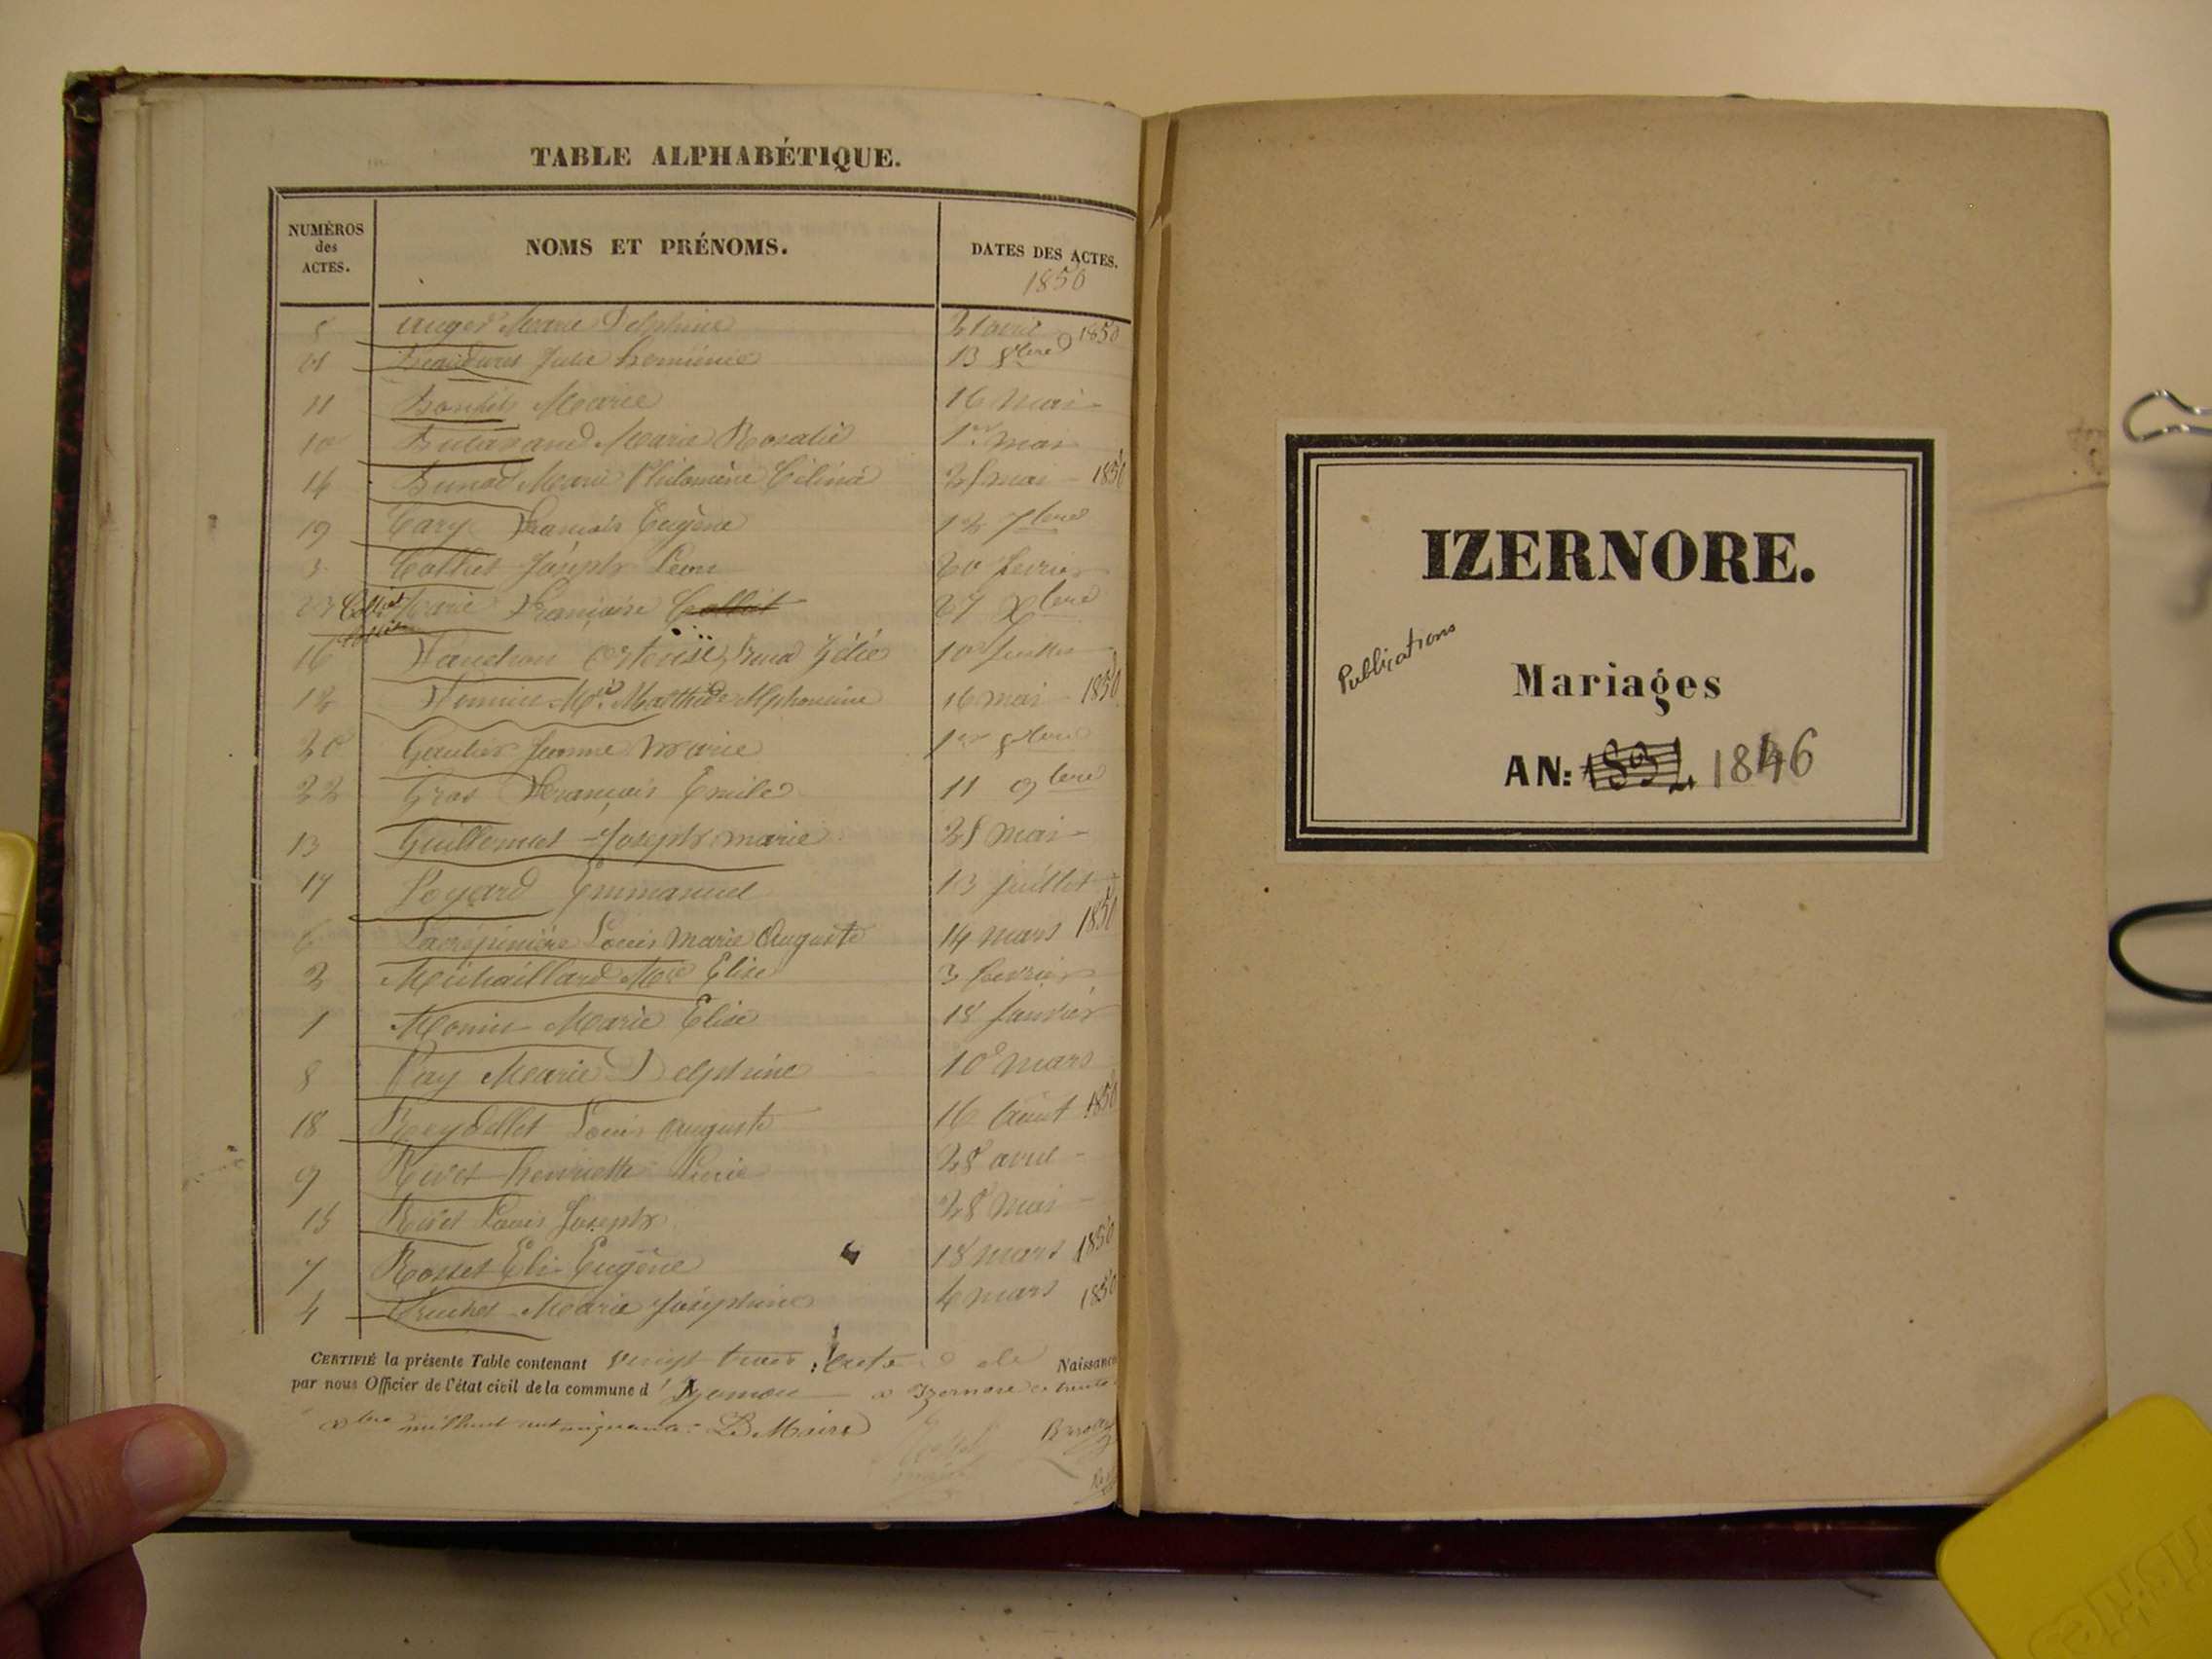 TABLE ALPHABÉTIQUE.
NUMÉROS des ACTES.
NOMS ET PRÉNOMS.
DATES DES ACTES.
1850
Marie Delphine 21 avril 1850
21 Julie herminie 13 8bre
11 Marie 16 mai
10 Marie Rosalie 1er mai
14 Marie Philomène Célina 25 mai 1850
19 Cary François Eugène 12 7bre
3 Collet Joseph Léon 20 février
23 Collet Marie Françoise Collet 27 Xbre
16 10 Juillet
12 Mathilde Alphonsine 16 mai 1850
20 Gautier Jeanne Marie 1er 8bre
22 Gros François Emile 11 9bre
13 Guillermet Joseph marie 25 mai
17 Loyard Emmanuel 13 juillet
6 Lacrépinière Louis Marie Auguste 14 mars 1850
2 Michaillard Mie Elise 3 février
1 Monin Marie Elise 18 Janvier
8 Marie Delphine 10 mars
18 Reydellet Louis Auguste 16 Août 1850
9 Rivet henriette 28 avril
15 Rivet Louis Joseph 28 Mai
7 Rosset Elie Eugène 18 mars 1850
4 Truchet Marie Joséphine 4 mars 1850
CERTIFIÉ la présente Table contenant vingt trois acte de Naissance
par nous Officier de l'état civil de la commune d'Izernore a Izernore ce trente
Xbre mil huit cent cinquante. Le Maire
IZERNORE.
Publications
Mariages
AN: 1846